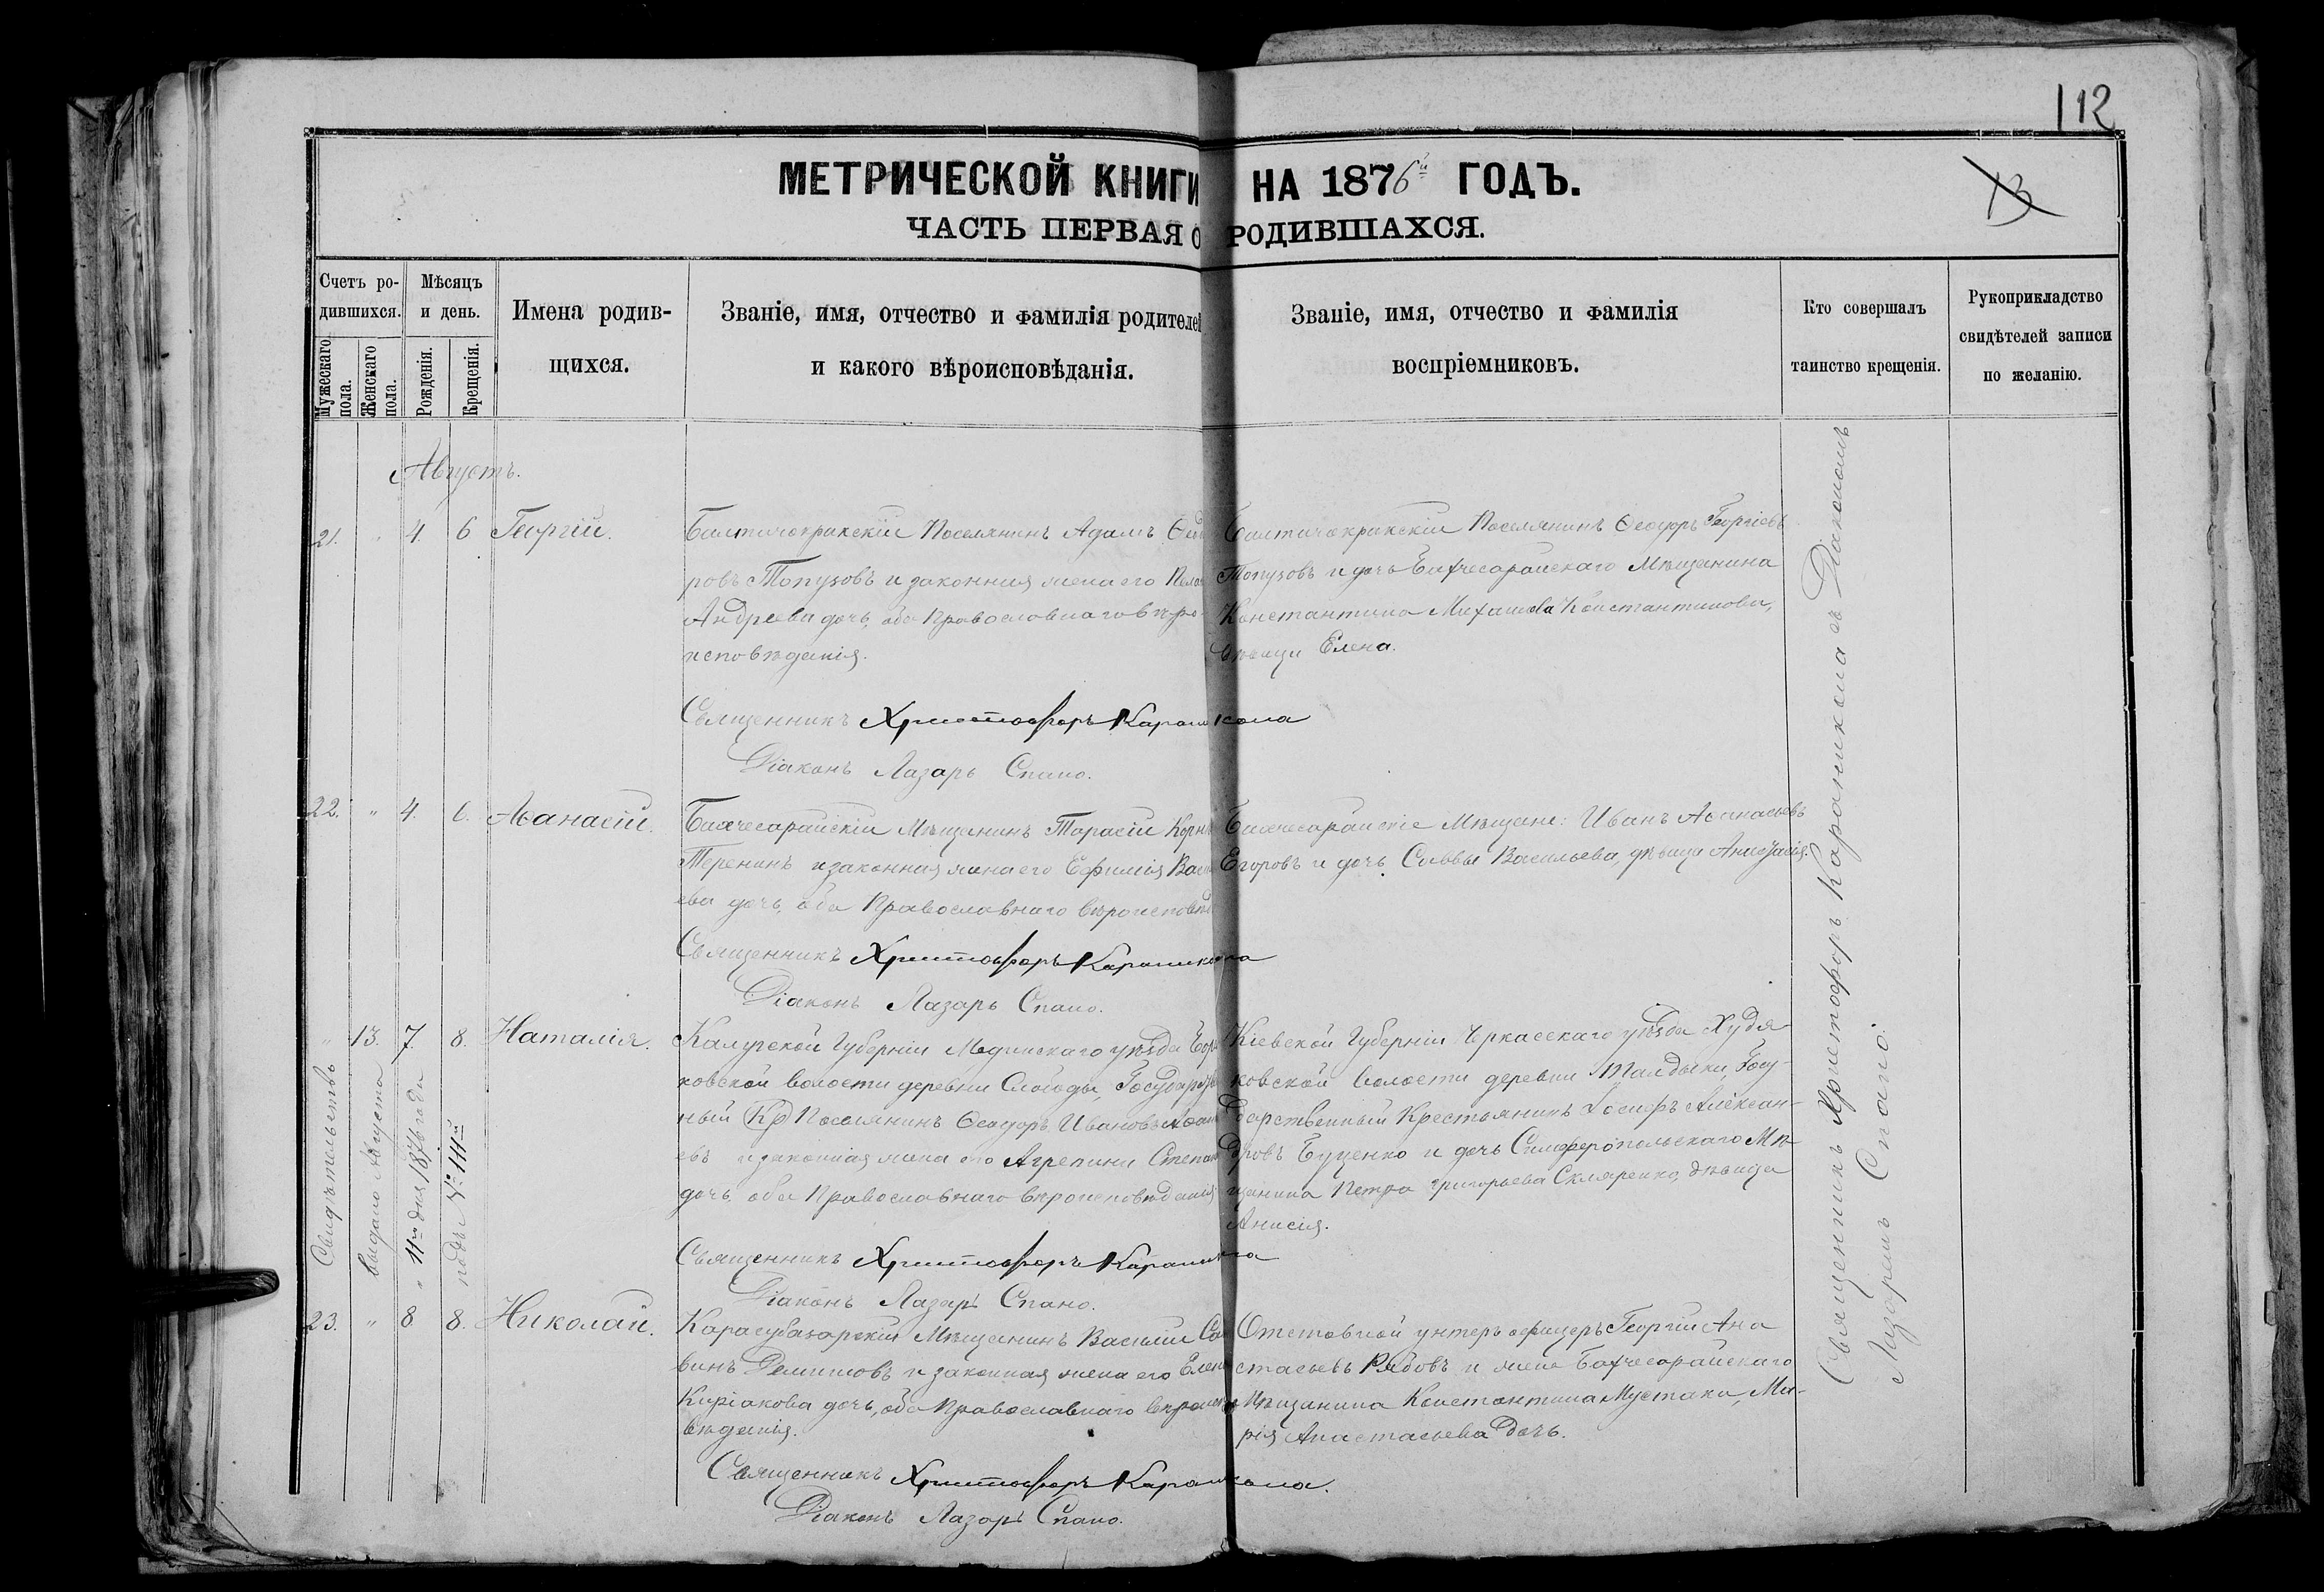 112
МЕТРИЧЕСКОЙ КНИГИ НА 1876й ГОДЪ.
13
ЧАСТЬ ПЕРВАЯ О РОДИВШАХСЯ.
Счетъ ро-
дившихся.
Мужескаго пола.
Женскаго пола.
Мѣсяцъ
и день.
Рожденія.
Крещенія.
Имена родив-
щихся.
Званіе, имя, отчество и фамилія родителей
и какого вѣроисповѣданія.
Званіе, имя, отчество и фамилія
воспріемниковъ.
Кто совершалъ
таинство крещенія.
Рукоприкладство
свидѣтелей записи
по желанію.
Августъ.
21. " 4. 6 Георгій.
Поселянинъ Адамъ
ровъ Топузовъ и законная жена его
Андреева дочь, оба Православнаго вѣро-
исповѣданія.
Священникъ Христофоръ Караникола
Діаконъ Лазарь Спано.
Поселянинъ Ѳеодоръ Георгіевъ
Топузовъ и дочь Бахчесарайскаго Мѣщанина
Константина Михаилова Константинова,
дѣвица Елена.
22. " 4. 6. Аѳанасій.
Бахчесарайскій Мѣщанинъ Тарасій
Теренинъ и законная жена его Ефимія
ева дочь, оба Православнаго вѣроисповѣд
Священникъ Христофоръ Караникола
Діаконъ Лазарь Спано.
Бахчесарайскіе Мѣщане: Иванъ Аѳанасьевъ
Егоровъ и дочь Саввы Васильева, дѣвица Анастасія.
" 13. 7. 8. Наталія.
Калужской Губерніи Медынскаго уѣзда
ковской волости деревни Слободы, Государств
ный Кр Поселянинъ Ѳеодоръ Ивановъ
евъ и законная жена его Агрепина Степан
дочь, оба Православнаго вѣроисповѣданія
Священникъ Христофоръ Караникола
Діаконъ Лазарь Спано.
Кіевской Губерніи Черкасскаго уѣзда Худя-
ковской волости деревни Талдыки, Госу-
дарственный Крестьянинъ Іосифъ Алексан-
дровъ Буценко и дочь Симферопольскаго Мѣ-
щанина Петра Григорьева Скляренко, дѣвица
Анисія.
Свидѣтельство
выдано Августа
" 11го дня 1876 года
подъ № 111й
23. " 8 8. Николай.
Карасубазарскій Мѣщанинъ Василій Сав
винъ Демишовъ и законная жена его Елена
Киріакова дочь, оба Православнаго вѣроиспо
вѣданія.
Священникъ Христофоръ Караникола.
Діаконъ Лазарь Спано.
Отставной унтеръ офицеръ Георгій Ана
стасьевъ Рябовъ и жена Бахчесарайскаго
Мѣщанина Константина Мустаки, Ма-
рія Анастасьева дочь.
Священникъ Христофоръ Караникола съ Діакономъ
Лазаремъ Спано.